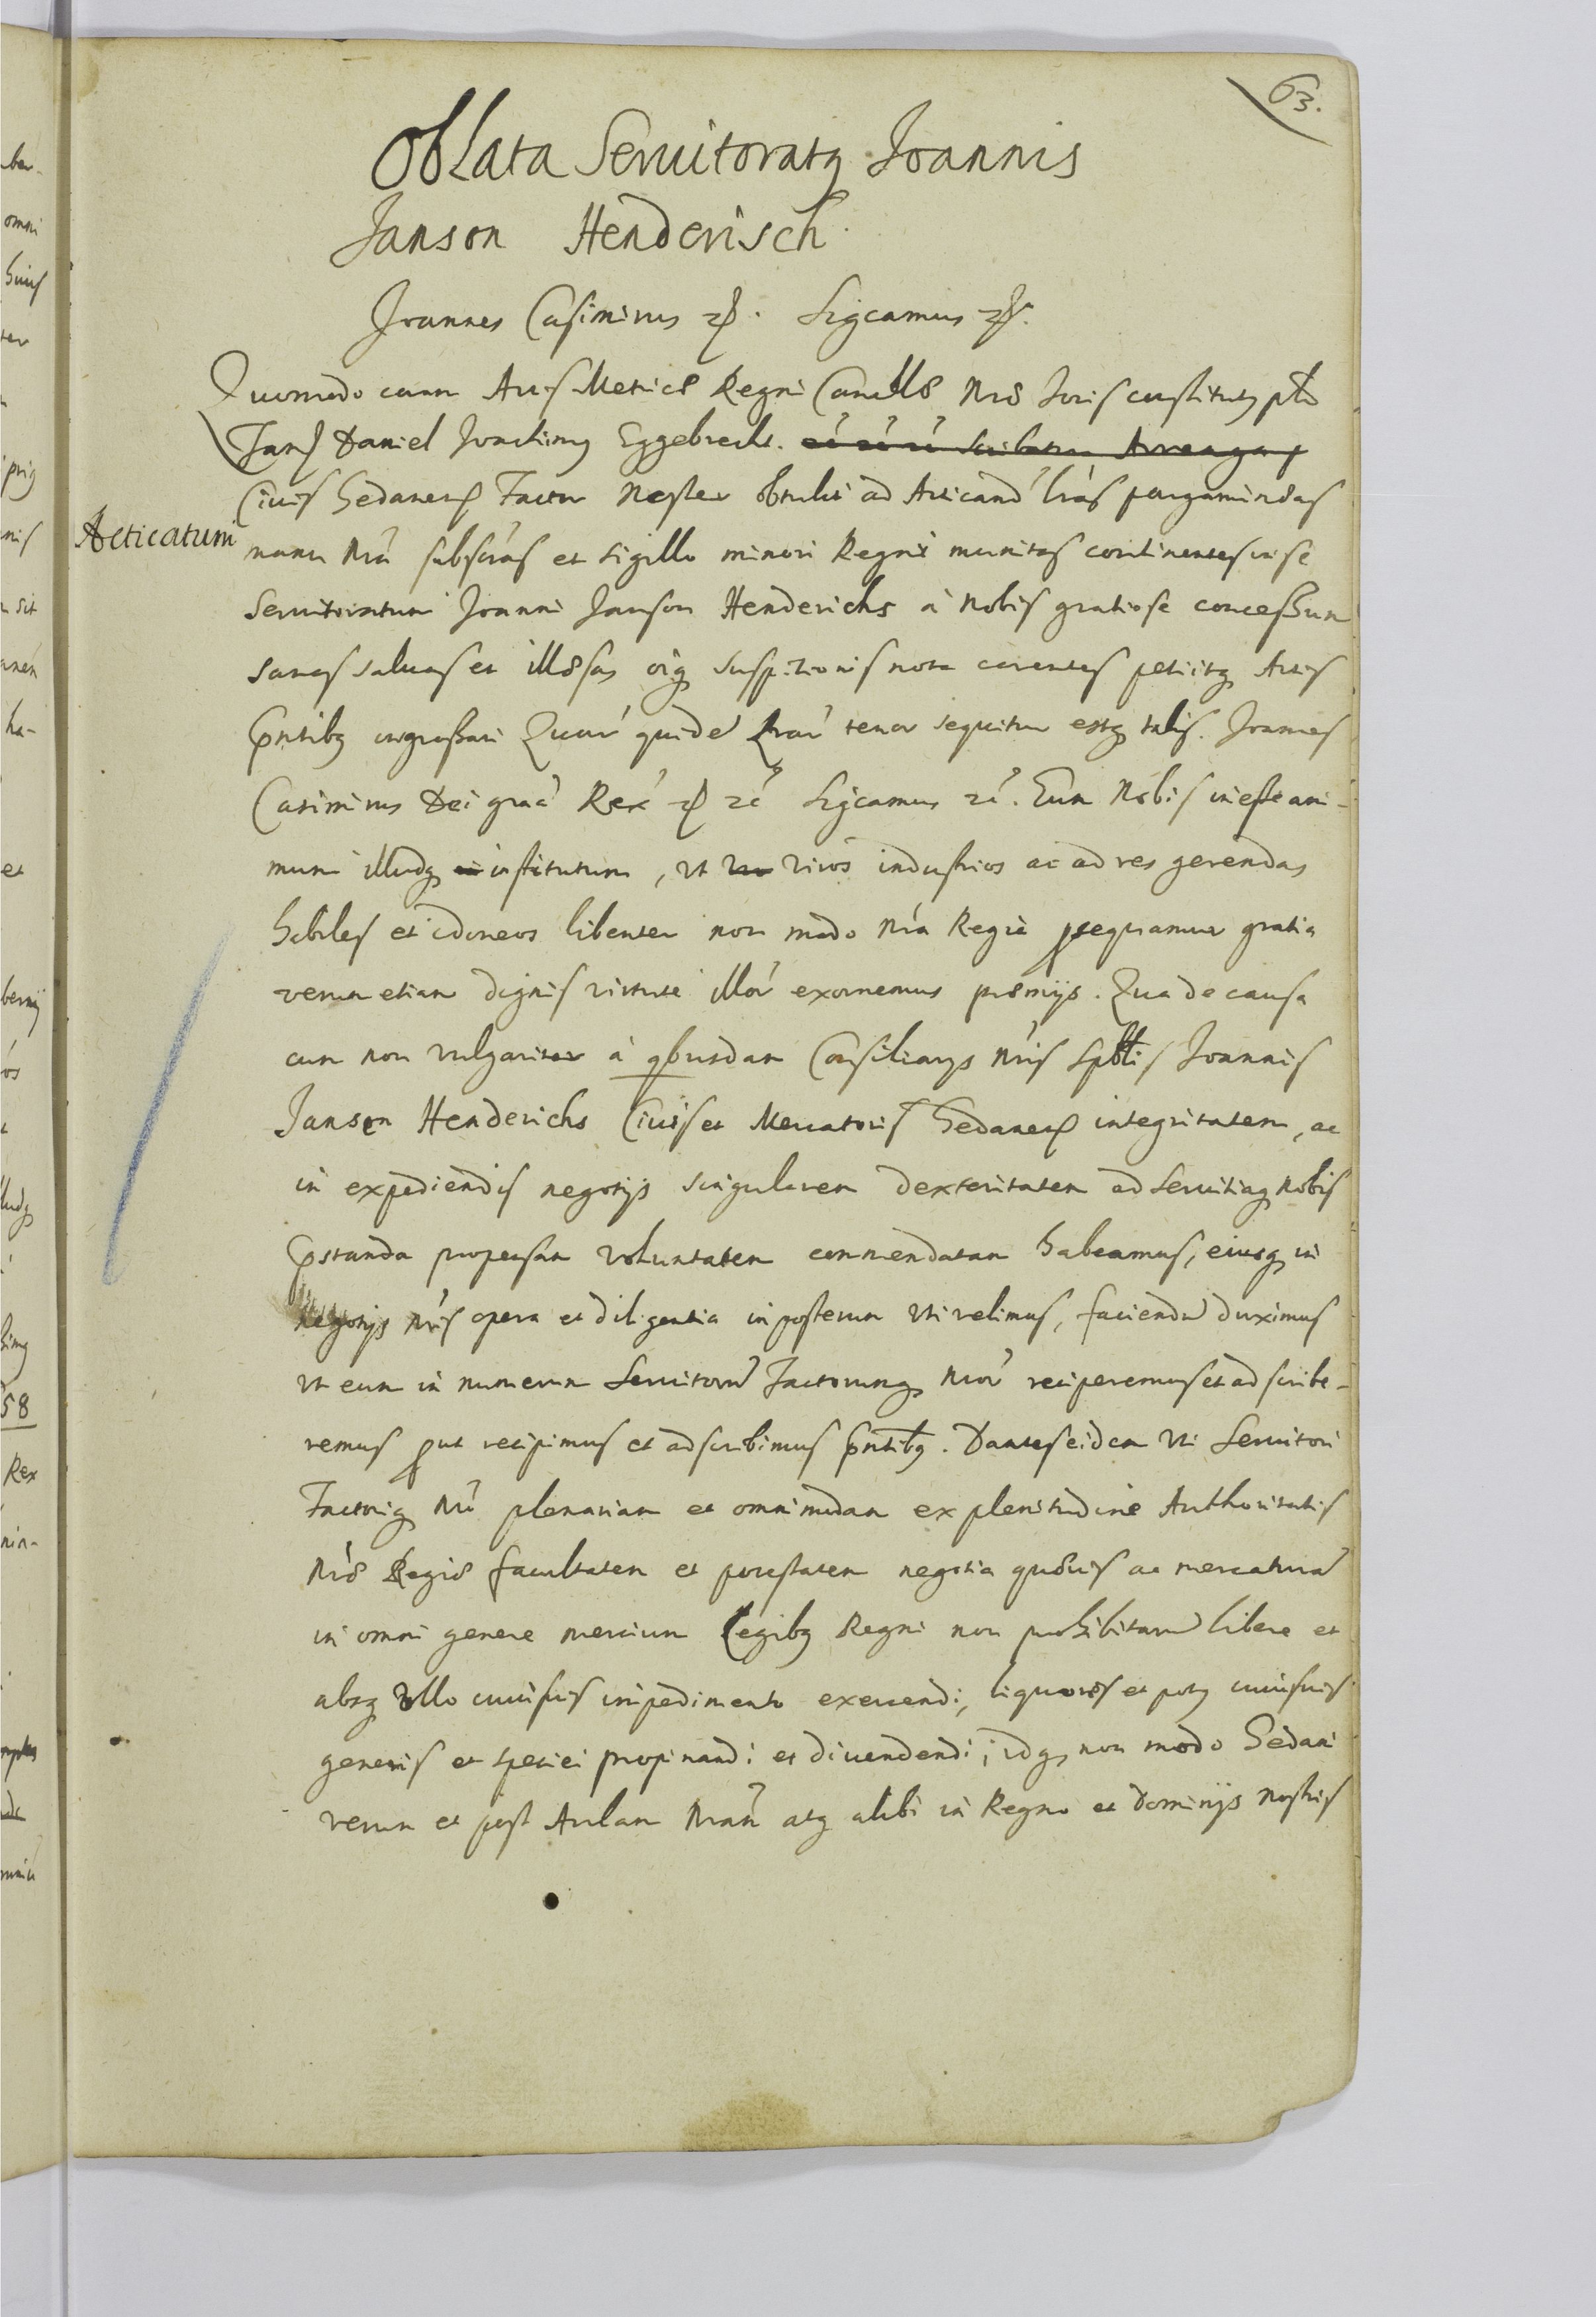 63.
Oblata Seruitoratq Joannis
Janson Henderisch
Joannes Casimirus etc. Sigcamus etc.
Quomodo coram Actis Metricæ Regni Cancellæ Nræ
Daniel Joachimq Eggebrecht.
Ciuis Gedanens Factor Noster obtulit ad Acticand lras pergamineas
Acticatum
manu Nra subscras et sigillo minori Regni munitas continentes in se
Seruitoratum Joanni Janson Henderichs à Nobis gratiose concessum
sanas saluas et illæsas oiq suspitionis nota carentes petiitq Actis
Pntibq ingrossari Quar quide lrar tenor sequitur estq talis. Joannes
Casimirus Dei gra Rex etc etc Sigcamus etc. Cum Nobis in esse ani-
mum illudq institutum, vt viros industrios ac ad res gerendas
habiles et idoneos libenter non modo Nra Regiè prosequamur gratia
verum etiam dignis virtute illor exornemus præmijs. Qua de causa
cum non vulgariter à qbusdam Consiliarys Nris Spbłis Joannis
Janson Henderichs Ciuis et Mercatoris Gedanens integritatem, ac
in expediendis negotijs singularem dexteritatem ad seruitiaq Nobis
Pstanda propensam voluntatem commendatam habeamus, eiusq in
negotijs Nris opera et diligentia in posterum vti velimus, faciendu duximus
vt eum in numerum Seruitoru Factorumq Nror reciperemus et ad scribe-
remus put recipimus et adscribimus Pntibq. Dantes eidem vti Seruitori
Factoriq Nro plenariam et omnimodam ex plenitudine Authoritatis
Nræ Regiæ facultatem et potestatem negotia quæuis ac mercatura
in omni genere mercium Legibq Regni non prohibitaru libere et
absq vllo cuiusuis impedimento exercendi, liquores et potq cuiusuis
generis et speciei propinandi et diuendendi, idq non modo Gedani
verum et post Aulam Nram atq alibi in Regno et Dominijs Nostris